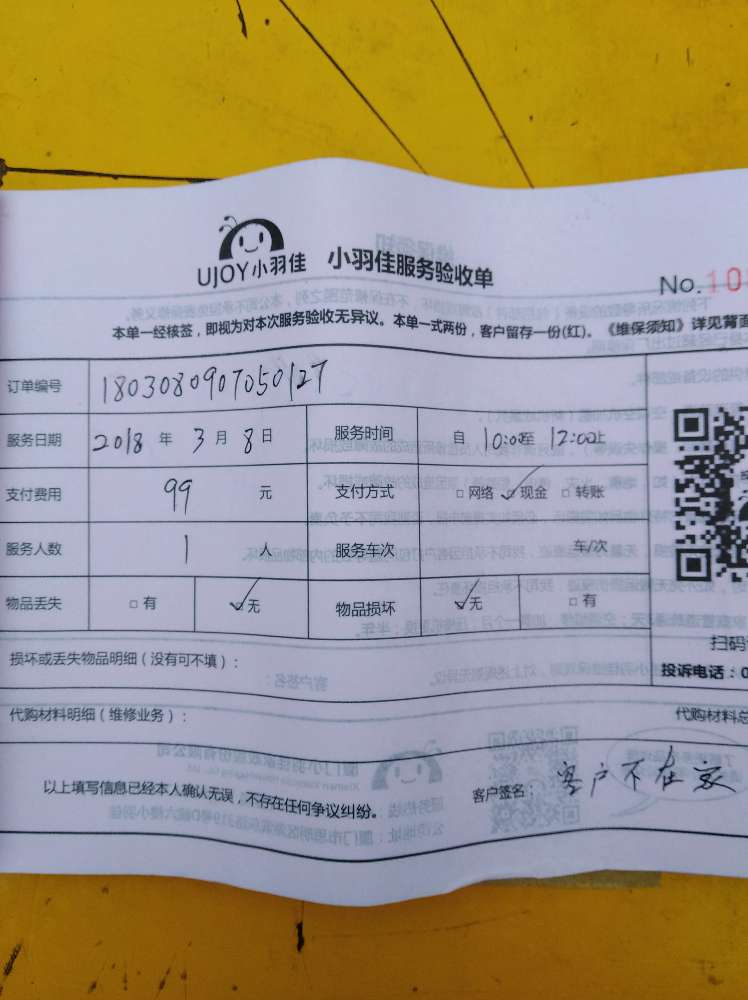 UJOY小羽佳 小羽佳服务验收单
No.10
本单一经核签，即视为对本次服务验收无异议。本单一式两份，客户留存一份(红)。《维保须知》详见背面
订单编号 1803080907050127
服务日期 2018 年 3 月 8 日 服务时间 自 10:00至 12:00止
支付费用 99 元 支付方式 □网络 ☑现金 □转账
服务人数 1 人 服务车次 车/次
物品丢失 □有 ☑无 物品损坏 ☑无 □有
扫码
损坏或丢失物品明细（没有可不填）：
投诉电话：0
代购材料明细（维修业务）：
代购材料总
以上填写信息已经本人确认无误，不存在任何争议纠纷。
客户签名： 客户不在家